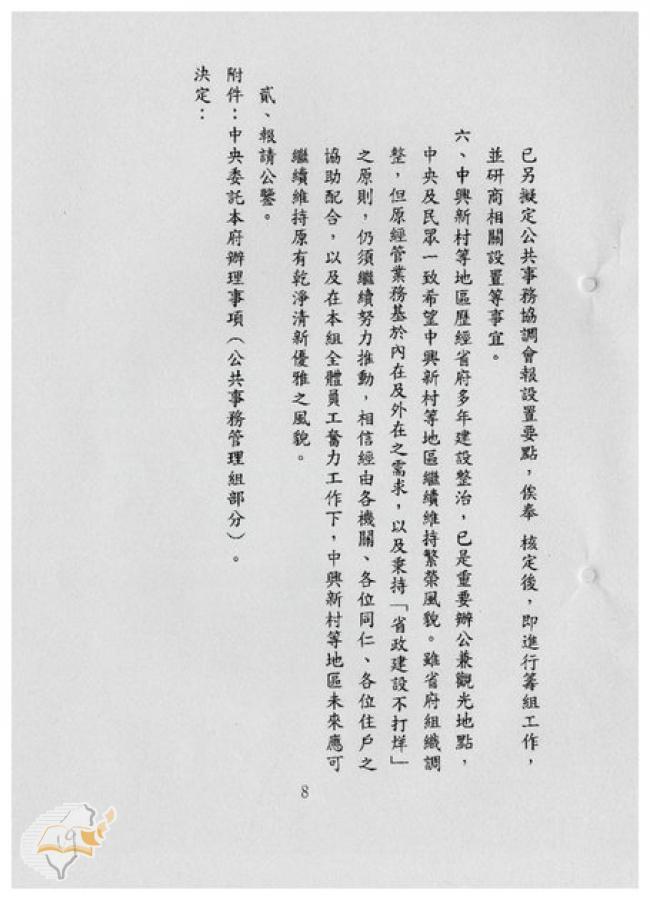 已另擬定公共事務協調會報設置要點，俟奉 核定後，即進行籌組工作，
並研商相關設置等事宜。
六、中興新村等地區歷經省府多年建設整治，已是重要辦公兼觀光地點，
中央及民眾一致希望中興新村等地區繼續維持繁榮風貌。雖省府組織調
整，但原經管業務基於內在及外在之需求，以及秉持「省政建設不打烊」
之原則，仍須繼續努力推動，相信經由各機關、各位同仁、各位住戶之
協助配合，以及在本組全體員工奮力工作下，中興新村等地區未來應可
繼續維持原有乾淨清新優雅之風貌。
貳、報請公鑒。
附件：中央委託本府辦理事項（公共事務管理組部分）。
決定：
8
19